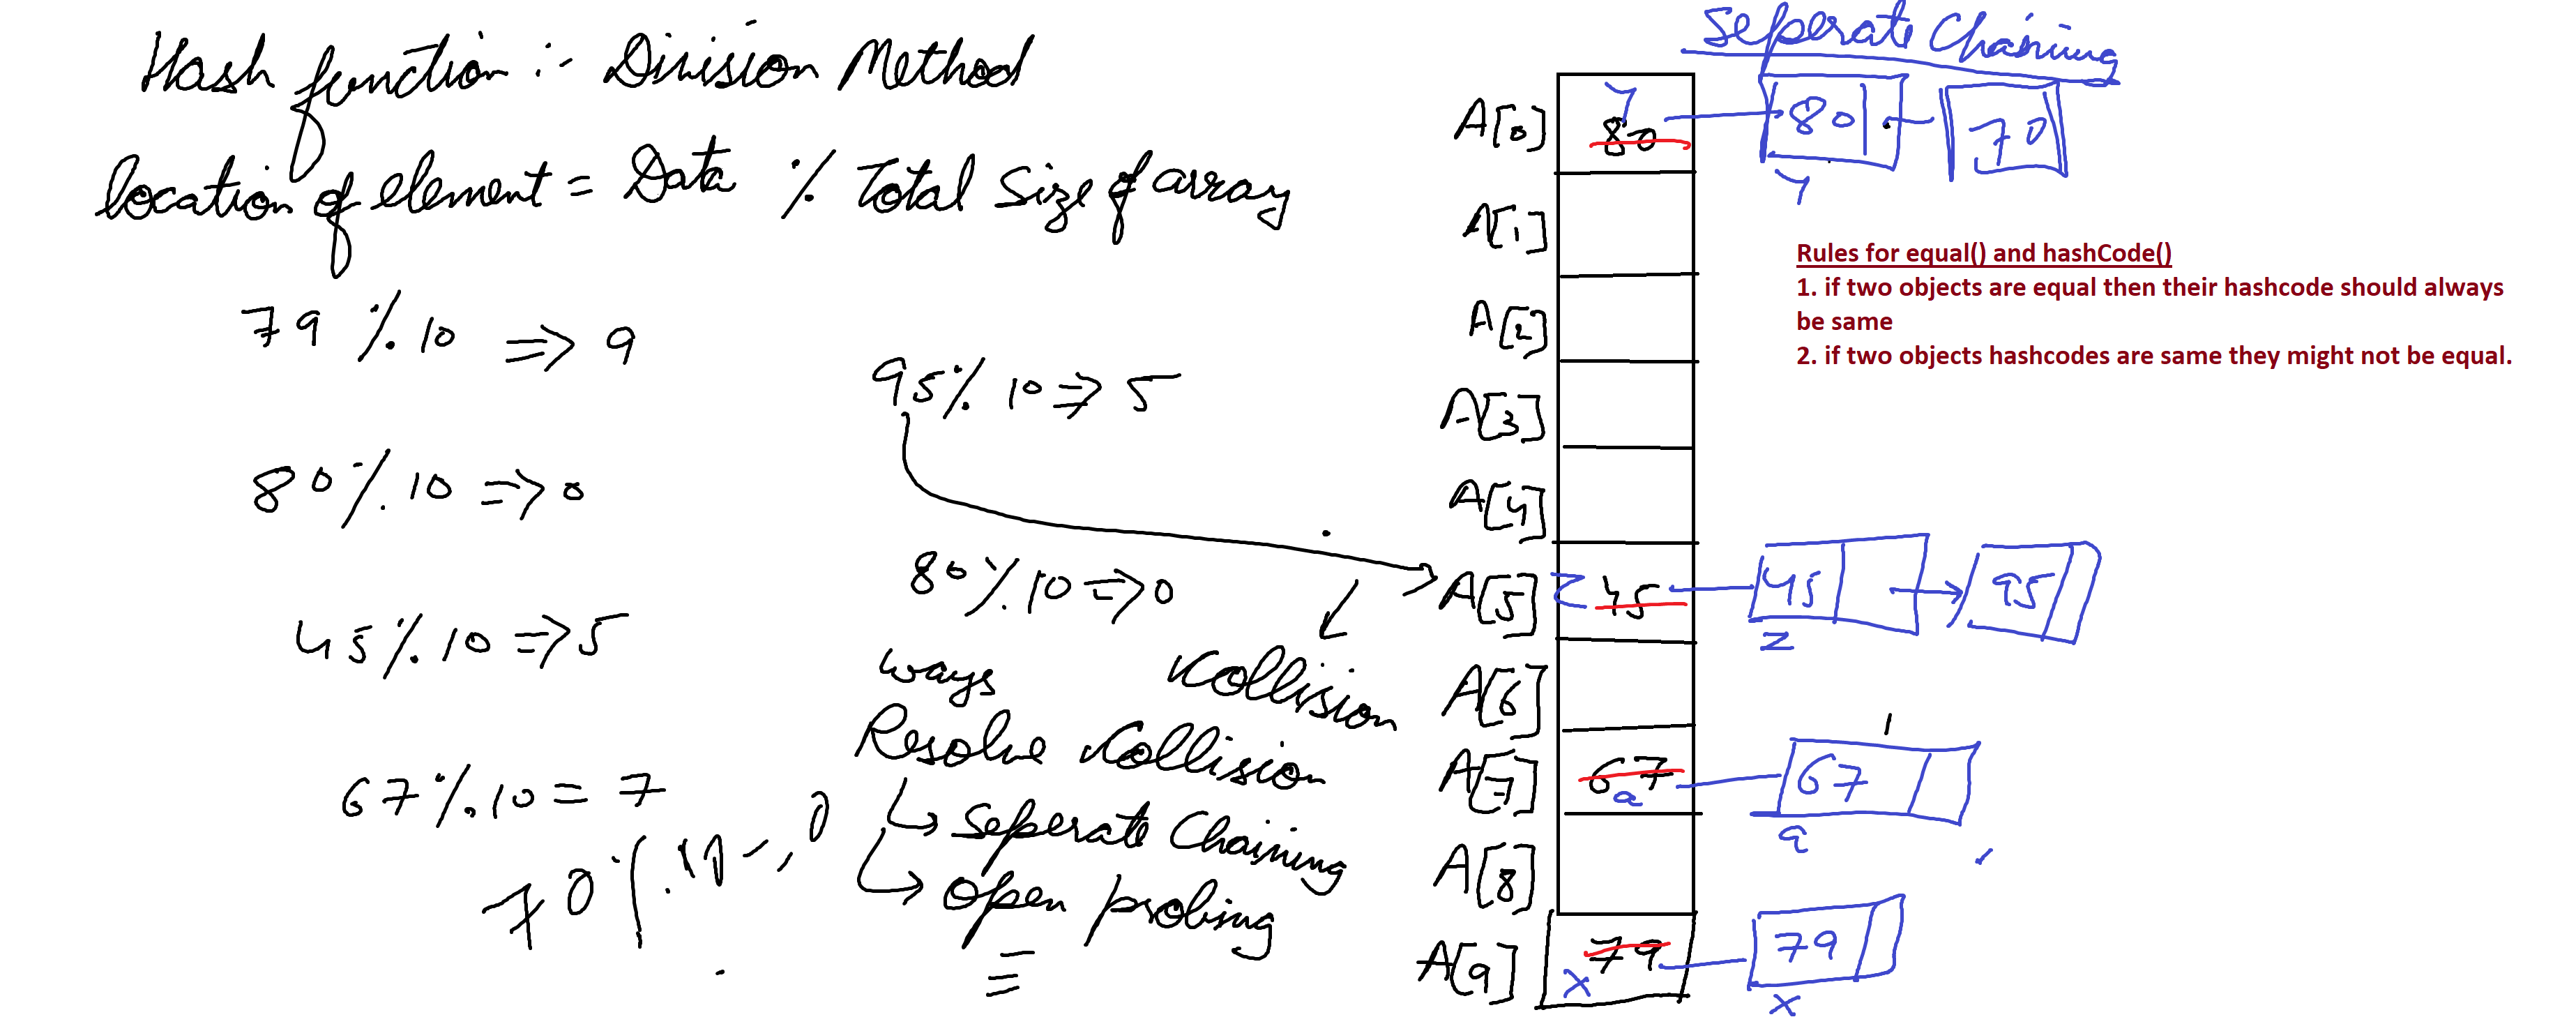 Hash function :- Division Method
location of element = Data % Total Size of array
79 % 10 => 9
80 % 10 => 0
45 % 10 => 5
67 % 10 = 7
70 %
0
95 % 10 => 5
80 % 10 => 0
Collision
ways
Resolve Collision
Seperate Chaining
open probing
Seperate Chaining
A[0] 80 80 70
y
A[1]
A[2]
A[3]
A[4]
A[5] z 45 45 95
z
A[6]
A[7] 67 67
a a
A[8]
A[9] 79 79
x x
Rules for equal() and hashCode()
1. if two objects are equal then their hashcode should always
be same
2. if two objects hashcodes are same they might not be equal.